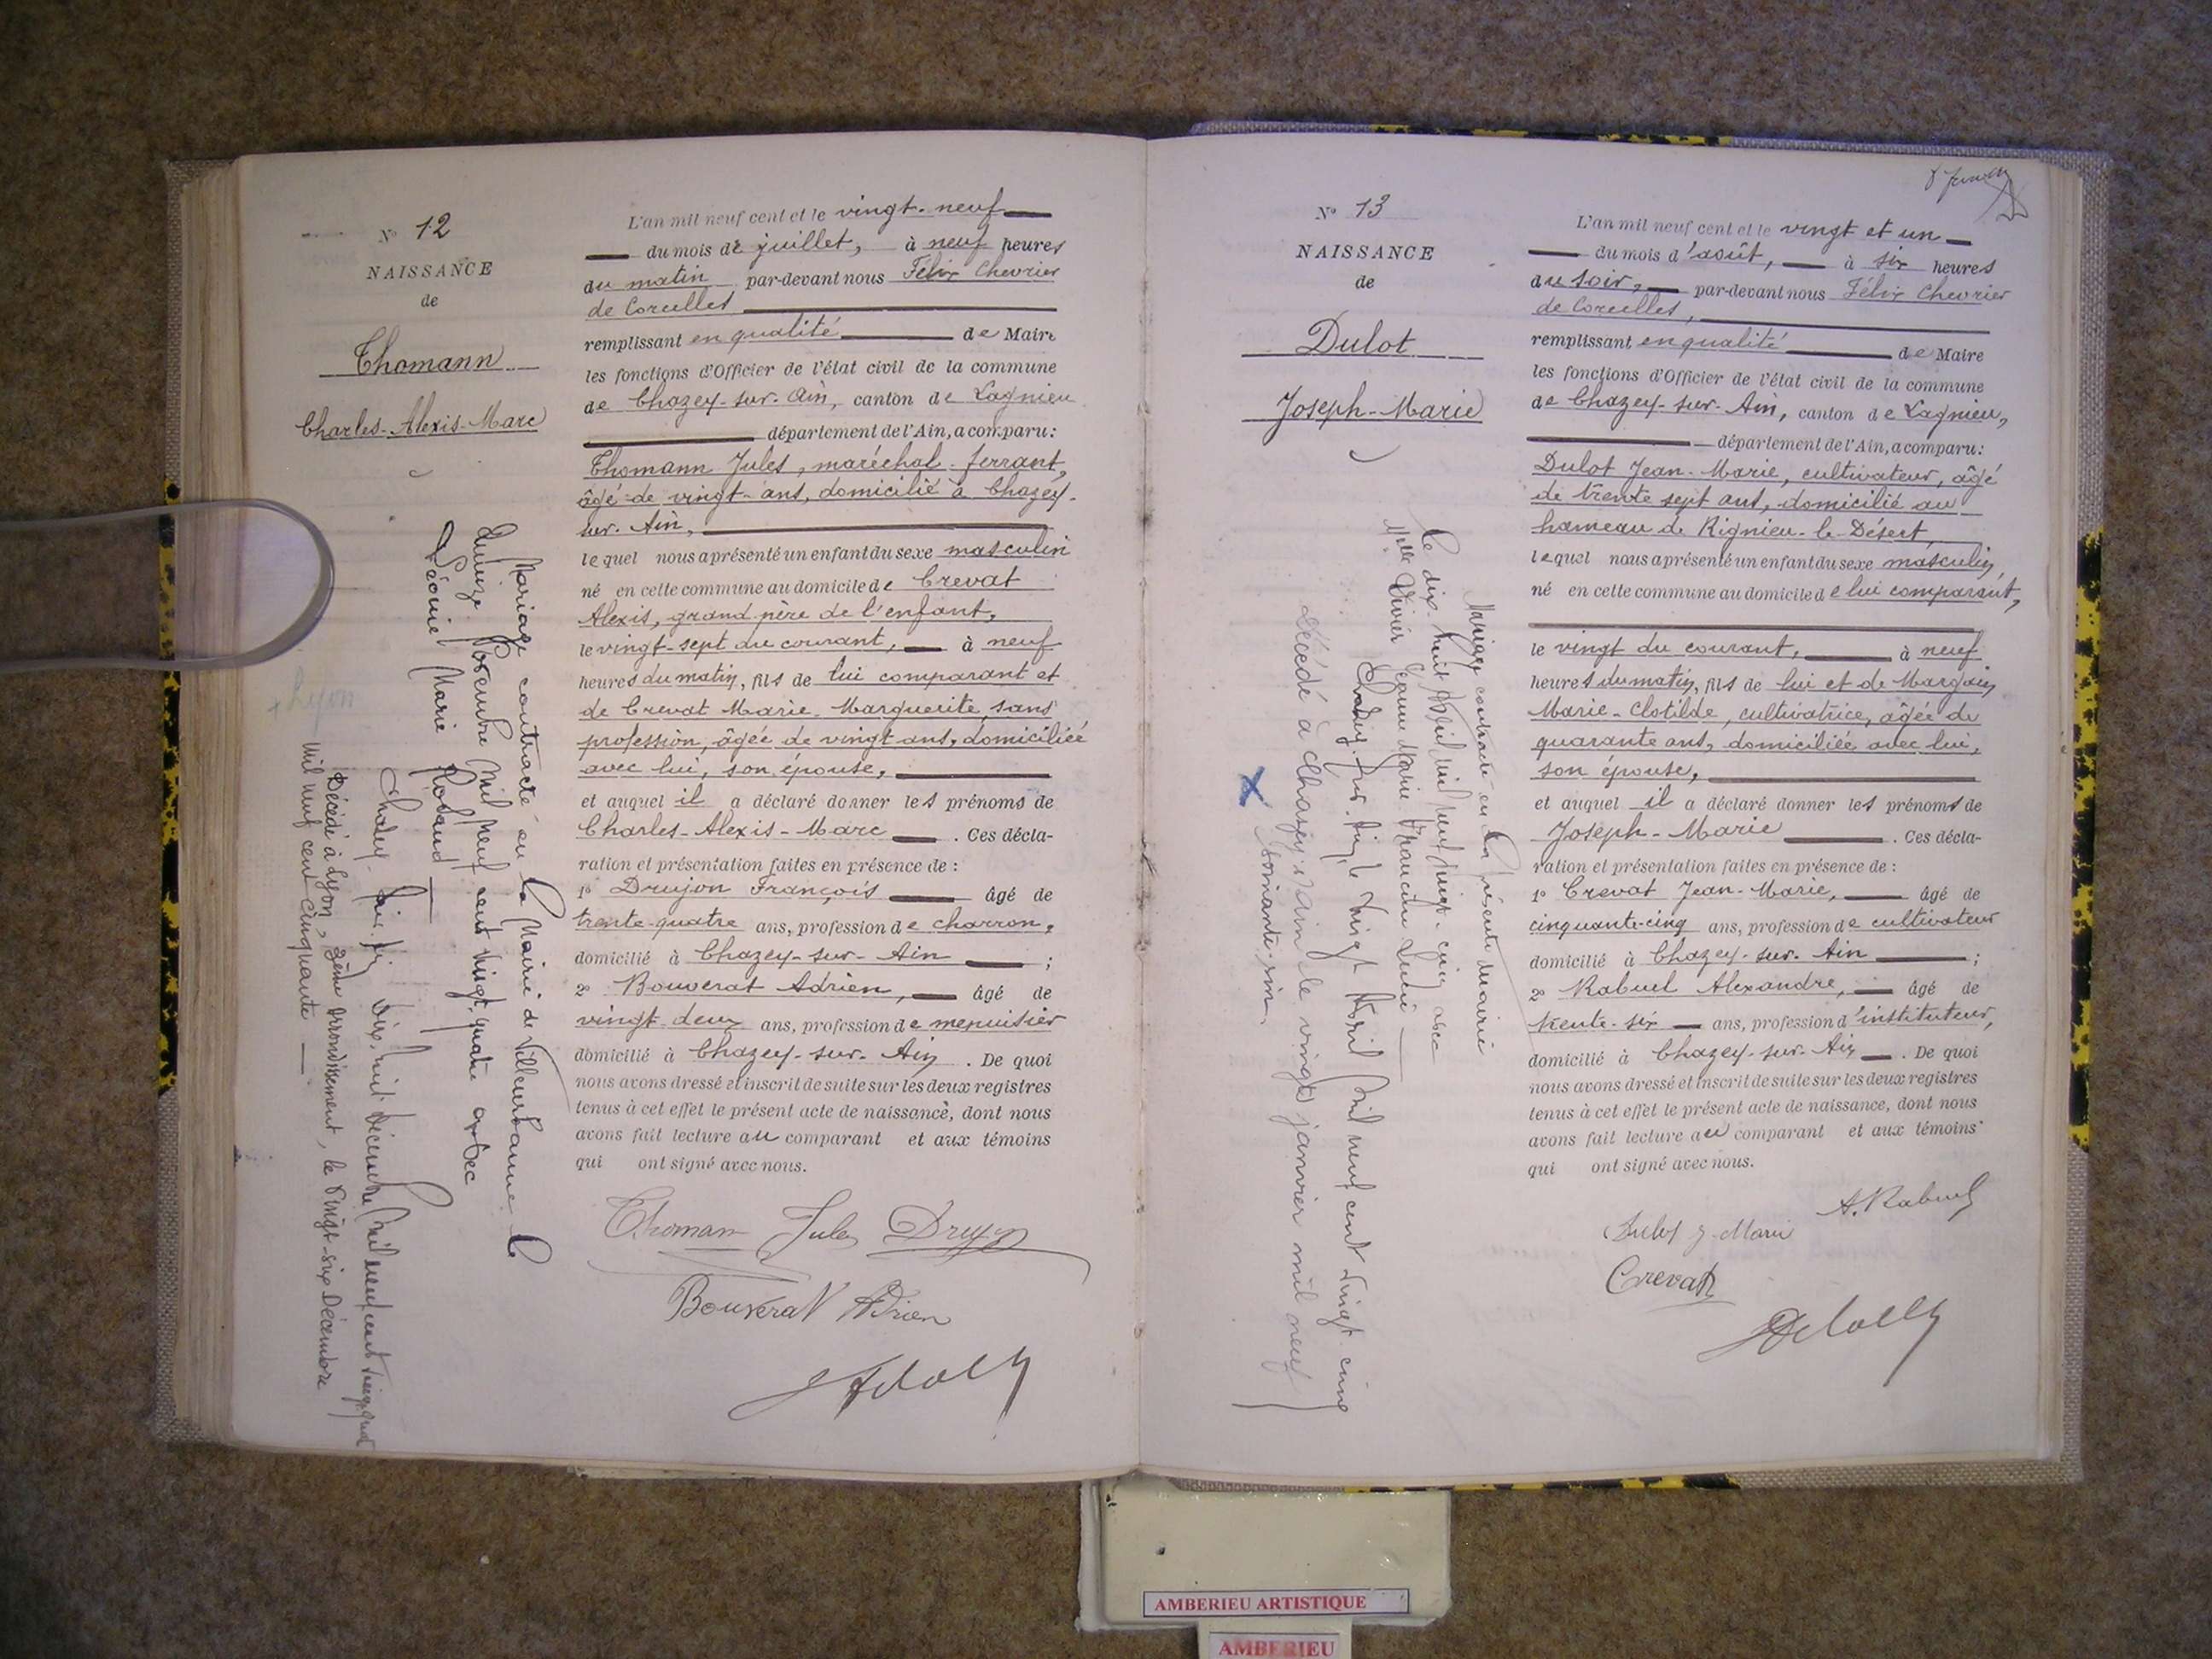 N° 12
NAISSANCE
de
Thomann
Charles-Alexis-Marc
L'an mil neuf cent et le vingt-neuf
du mois de juillet, à neuf heures
du matin par-devant nous Félix Chevrier
de Corcelles
remplissant en qualité de Maire
les fonctions d'Officier de l'état civil de la commune
de Chazey-sur-Ain, canton de Lagnieu
département de l'Ain, a comparu:
Thomann Jules, maréchal-ferrant,
âgé de vingt-ans, domicilié à Chazey-
sur-Ain,
lequel nous a présenté un enfant du sexe masculin
né en cette commune au domicile de Crevat
Alexis, grand père de l'enfant,
le vingt-sept du courant, à neuf
heures du matin, fils de lui comparant et
de Crevat Marie-Marguerite, sans
profession, âgée de vingt ans, domiciliée
avec lui, son épouse,
et auquel il a déclaré donner les prénoms de
Charles-Alexis-Marc. Ces décla-
ration et présentation faites en présence de :
1° Drujon François âgé de
trente-quatre ans, profession de charron,
domicilié à Chazey-sur-Ain ;
2° Bouverat Adrien, âgé de
vingt-deux ans, profession de menuisier
domicilié à Chazey-sur-Ain. De quoi
nous avons dressé et inscrit de suite sur les deux registres
tenus à cet effet le présent acte de naissance, dont nous
avons fait lecture au comparant et aux témoins
qui ont signé avec nous.
Thoman Jules Drujon
Bouverat Adrien
Mariage contracté en la Mairie de Villeurbanne le
quinze Novembre mil neuf cent vingt-quatre avec
Léonie Marie Robaud
Chazey-sur-Ain dix-huit Décembre mil neuf cent vingt quat
Décédé à Lyon, 2ème arrondissement, le vingt-six Décembre
mil neuf cent cinquante
+ Lyon
N° 13
NAISSANCE
de
Dulot
Joseph-Marie
L'an mil neuf cent et le vingt et un
du mois d'août, à six heures
du soir, par-devant nous Félix Chevrier
de Corcelles,
remplissant en qualité de Maire
les fonctions d'Officier de l'état civil de la commune
de Chazey-sur-Ain, canton de Lagnieu,
département de l'Ain, a comparu:
Dulot Jean-Marie, cultivateur, âgé
de trente sept ans, domicilié au
hameau de Rignieu-le-Désert,
lequel nous a présenté un enfant du sexe masculin,
né en cette commune au domicile de lui comparant,
le vingt du courant, à neuf
heures du matin, fils de lui et de Margain
Marie-Clotilde, cultivatrice, âgée de
quarante ans, domiciliée avec lui,
son épouse,
et auquel il a déclaré donner les prénoms de
Joseph-Marie. Ces décla-
ration et présentation faites en présence de :
1° Crevat Jean-Marie, âgé de
cinquante-cinq ans, profession de cultivateur
domicilié à Chazey-sur-Ain ;
2° Rabuel Alexandre, âgé de
trente-six ans, profession d'instituteur,
domicilié à Chazey-sur-Ain. De quoi
nous avons dressé et inscrit de suite sur les deux registres
tenus à cet effet le présent acte de naissance, dont nous
avons fait lecture au comparant et aux témoins
qui ont signé avec nous.
A. Rabuel
Dulot J-Marie
Crevat
Mariage contracté en la présente mairie
Le dix-huit Avril mil neuf vingt-cinq avec
Melle Vivier Jeanne Marie Francine Lucie
Chazey-sur-Ain, le vingt Avril mil neuf cent vingt cinq
Décédé à Chazey s/Ain le vingt janvier mil neuf
soixante-six.
AMBERIEU ARTISTIQUE
AMBERIEU